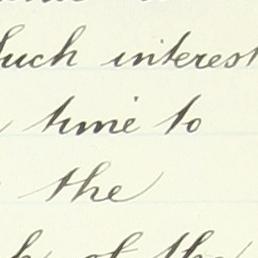 such interest
time to
the
of the